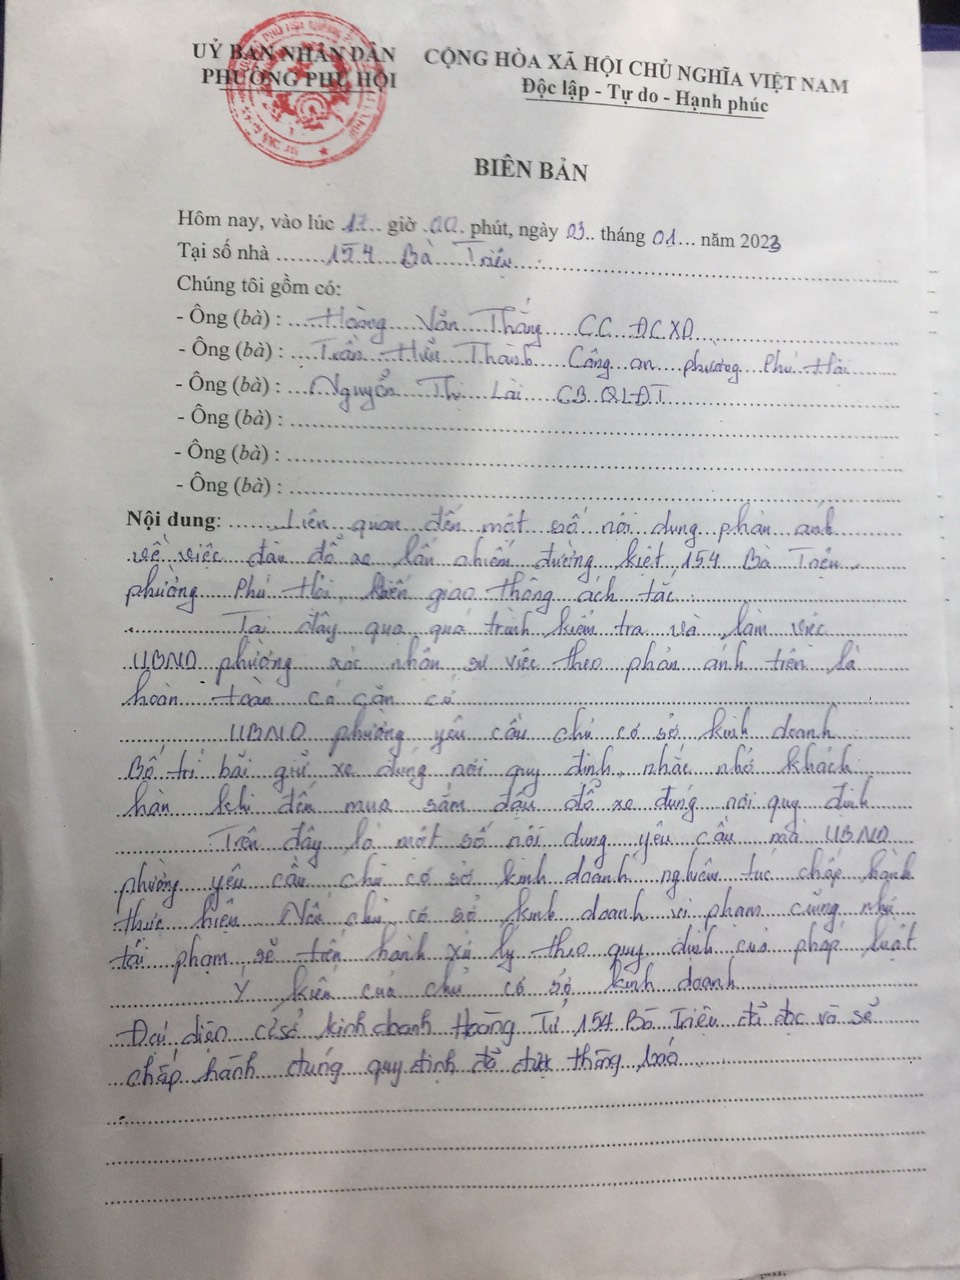 UỶ BAN NHÂN DÂN
PHƯỜNG PHÚ HỘI
CỘNG HÒA XÃ HỘI CHỦ NGHĨA VIỆT NAM
Độc lập - Tự do - Hạnh phúc
BIÊN BẢN
Hôm nay, vào lúc 17.. giờ .00. phút, ngày 03.. tháng 01... năm 2023
Tại số nhà ........ 154 Bà Triệu
Chúng tôi gồm có:
- Ông (bà) : Hoàng Văn Thắng CC ĐCXD
- Ông (bà) : Trần Hữu Thành Công an phường Phú Hội
- Ông (bà) : Nguyễn Thị Lài CB QLĐT
- Ông (bà) :
- Ông (bà) :
- Ông (bà) :
Nội dung: Liên quan đến một số nội dung phản ánh
về việc đậu đổ xe lấn chiếm đường kiệt 154 Bà Triệu
phường Phú Hội, khiến giao thông ách tắc.
Tại đây qua quá trình kiểm tra và làm việc
UBND phường xác nhận sự việc theo phản ánh trên là
hoàn toàn có căn cứ
UBND phường yêu cầu chủ cơ sở kinh doanh
Bố trí bãi giữ xe đúng nơi quy định, nhắc nhở khách
hàn khi đến mua sắm đậu đổ xe đúng nơi quy định
Trên đây là một số nội dung yêu cầu mà UBND
phường yêu cầu chủ cơ sở kinh doanh nghiêm túc chấp hành
thực hiện. Nếu chủ cơ sở kinh doanh vi phạm cũng như
tái phạm sẽ tiến hành xử lý theo quy định của pháp luật
Ý kiến của chủ cơ sở kinh doanh
Đại diện cơ sở kinh doanh Hoàng Tử 154 Bà Triệu đã đọc và sẽ
chấp hành đúng quy định đã được thông báo